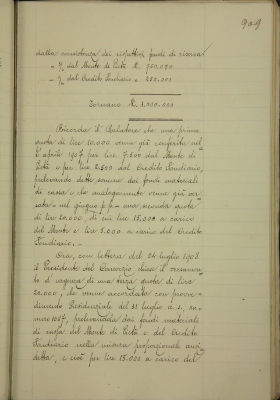 909
dalla consistenza dei rispettivi fondi di riserva
del Monte di Pietà L. 750.000
del Credito Fondiario " 250.000
Tornano L. 1.000.000
Ricorda il Relatore che una prima
quota di lire 10.000 venne già conferita nel
aprile 1907 per 7.500 dal Monte di
Pietà e per L. 2.500 dal Credito Fondiario,
prelevando dette somme dai fondi materiali
di cassa e che analogamente venne già ver-
sata nel giugno p.p. una seconda quota
di lire 20.000 di cui lire 15.000 a carico
del Monte e lire 5.000 a carico del Credito
Fondiario.
Ora, con lettera del 24 luglio 1908
il Presidente del Consorzio chiese il versamen-
to di una terza quota di lire
20.000, che venne accordata con provve-
dimento Presidenziale del 31 luglio a.c., nu-
mero 1057, prelevandola dai fondi materiali
di cassa del Monte di Pietà e del Credito
Fondiario nella misura proporzionale anzi-
detta, e cioè per lire 15.000 a carico del